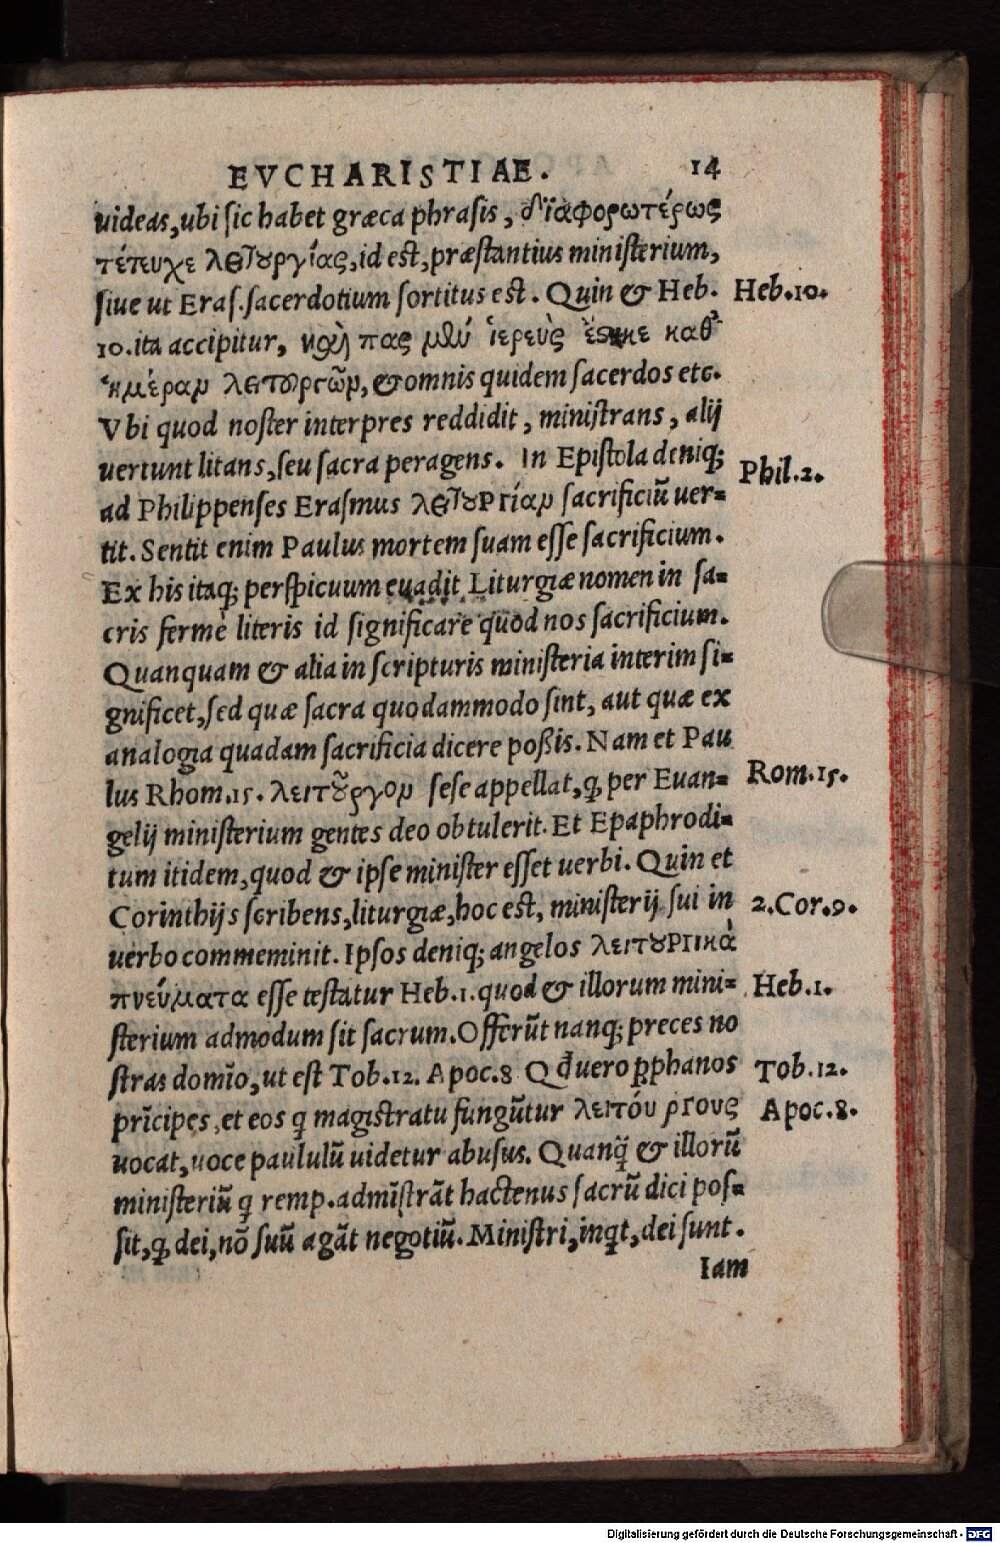 EVCHARISTIAE. 14
uideas, ubi sic habet græca phrasis, διαφορωτέρως
τέτευχε λειτουργίας, id est, præstantius ministerium,
siue ut Eras. sacerdotium sortitus est. Quin & Heb.
Heb.10.
10. ita accipitur, καὶ πας μὲν ἱερεὺς ἕστηκε καθ'
ἡμέραν λειτουργῶν, & omnis quidem sacerdos etc.
Vbi quod noster interpres reddidit, ministrans, alij
uertunt litans, seu sacra peragens. In Epistola deniq;
Phil.2.
ad Philippenses Erasmus λειτουργίαν sacrificiũ uer=
tit. Sentit enim Paulus mortem suam esse sacrificium.
Ex his itaq; perspicuum euadit Liturgiæ nomen in sa=
cris fermè literis id significare quod nos sacrificium.
Quanquam & alia in scripturis ministeria interim si=
gnificet, sed quæ sacra quodammodo sint, aut quæ ex
analogia quadam sacrificia dicere poßis. Nam et Pau
Rom.15.
lus Rhom.15. λειτουργον sese appellat, ꝙ per Euan=
gelij ministerium gentes deo obtulerit. Et Epaphrodi=
tum itidem, quod & ipse minister esset uerbi. Quin et
Corinthijs scribens, liturgiæ, hoc est, ministerij sui in
2.Cor.9.
uerbo commeminit. Ipsos deniq; angelos λειτουργικὰ
πνεύματα esse testatur Heb.1. quod & illorum mini=
Heb.1.
sterium admodum sit sacrum. Offerũt nanq; preces no
stras domĩo, ut est Tob.12. Apoc.8 Qđ uero ꝓphanos
Tob.12.
prĩcipes, et eos q magistratu fungũtur λειτόυργους
Apoc.8.
uocat, uoce paululũ uidetur abusus. Quanq̃ & illorũ
ministeriũ q remp. admĩstrãt hactenus sacrũ dici pos=
sit, ꝙ dei, nõ suũ agãt negotiũ. Ministri, inqt, dei sunt.
Iam
Digitalisierung gefördert durch die Deutsche Forschungsgemeinschaft - DFG